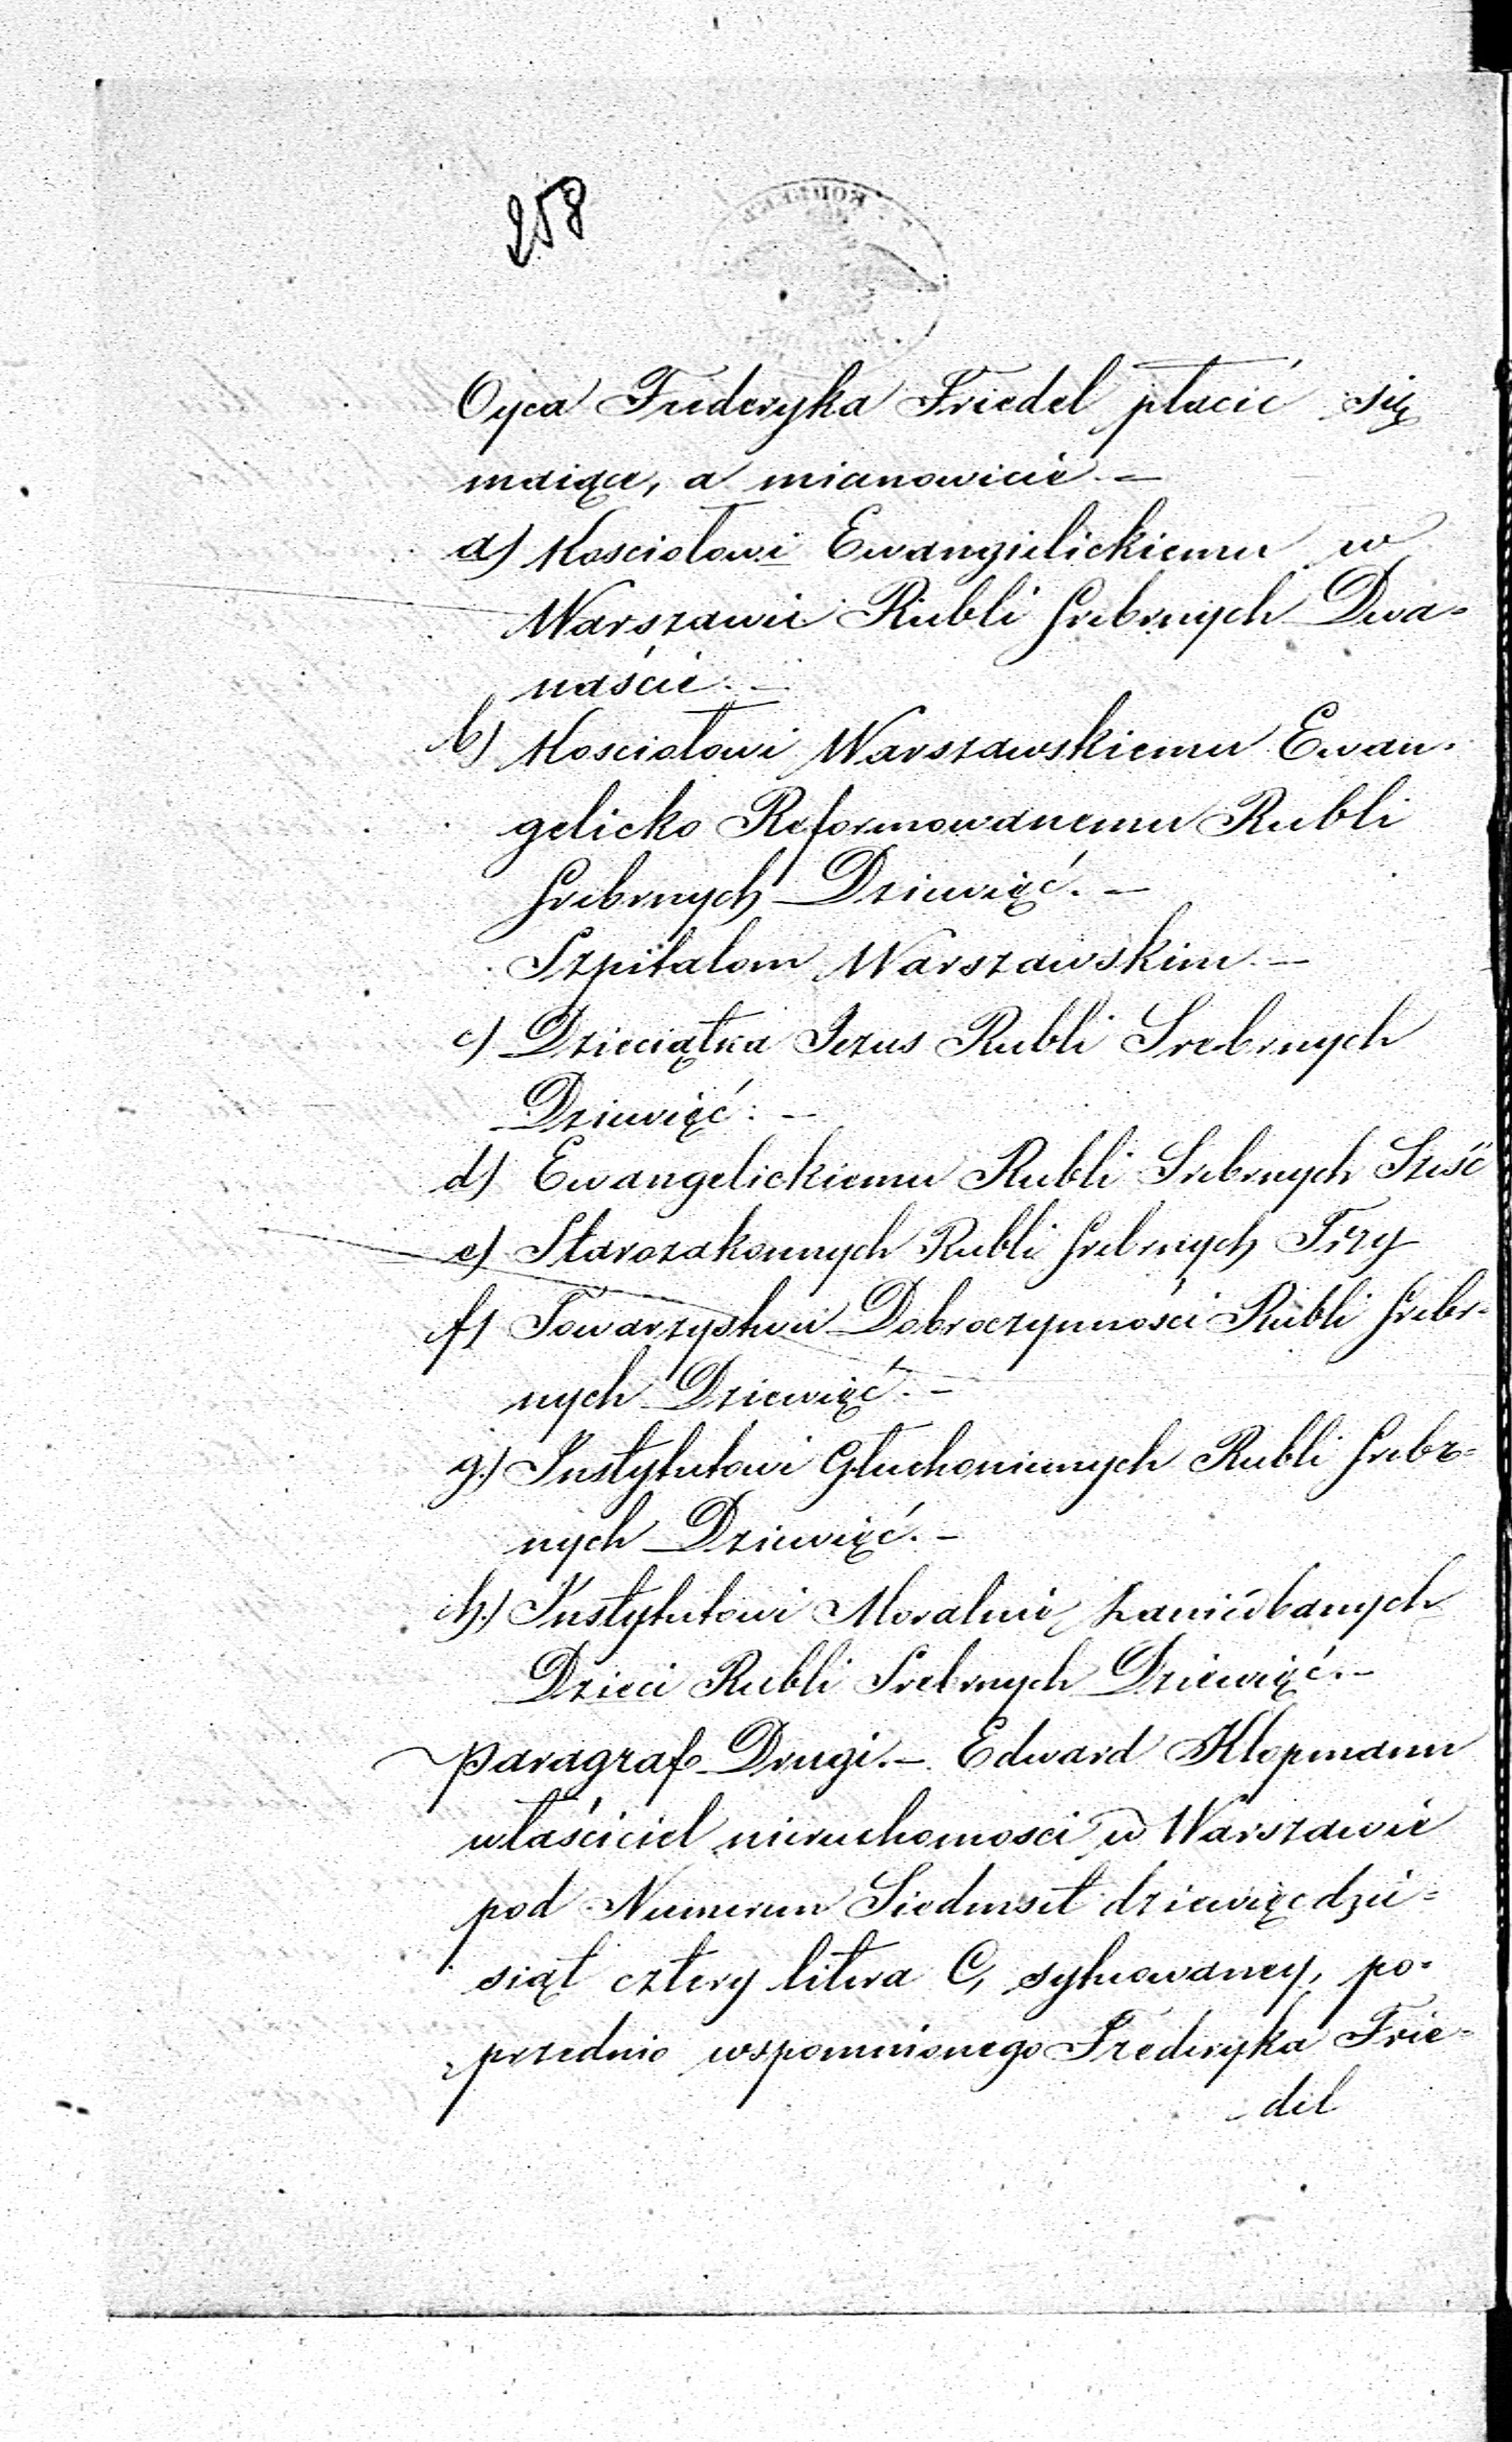 258
Oyca Fryderyka Friedel płacić się
maiące, a mianowicie. —
a) Kosciołowi Ewangielickiemu w
Warszawie Rubli srebrnych Dwa=
naście. —
b) Kosciołowi Warszawskiemu Ewan=
gelicko Reformowanemu Rubli
srebrnych Dziewięć. —
Szpitalom Warszawskim. —
c) Dzieciątka Jezus Rubli Srebrnych
Dziewięć. —
d) Ewangelickiemu Rubli Srebrnych Sześć
e) Starozakonnych Rubli srebrnych Trzy
f) Towarzystwu Dobroczynności Rubli srebr-
nych Dziewięć. —
g.) Instytutowi Głuchoniemych Rubli srebr=
nych Dziewięć. —
h.) Instytutowi Moralnie zaniedbanych
Dzieci Rubli Srebrnych Dziewięć. —
Paragraf Drugi. — Edward Klopmann
właściciel nieruchomosci w Warszawie
pod Numerem Siedmset dziewięcdzie=
siąt cztery litera C, sytuowaney, po=
przednio wspomnionego Frederyka Frie=
del